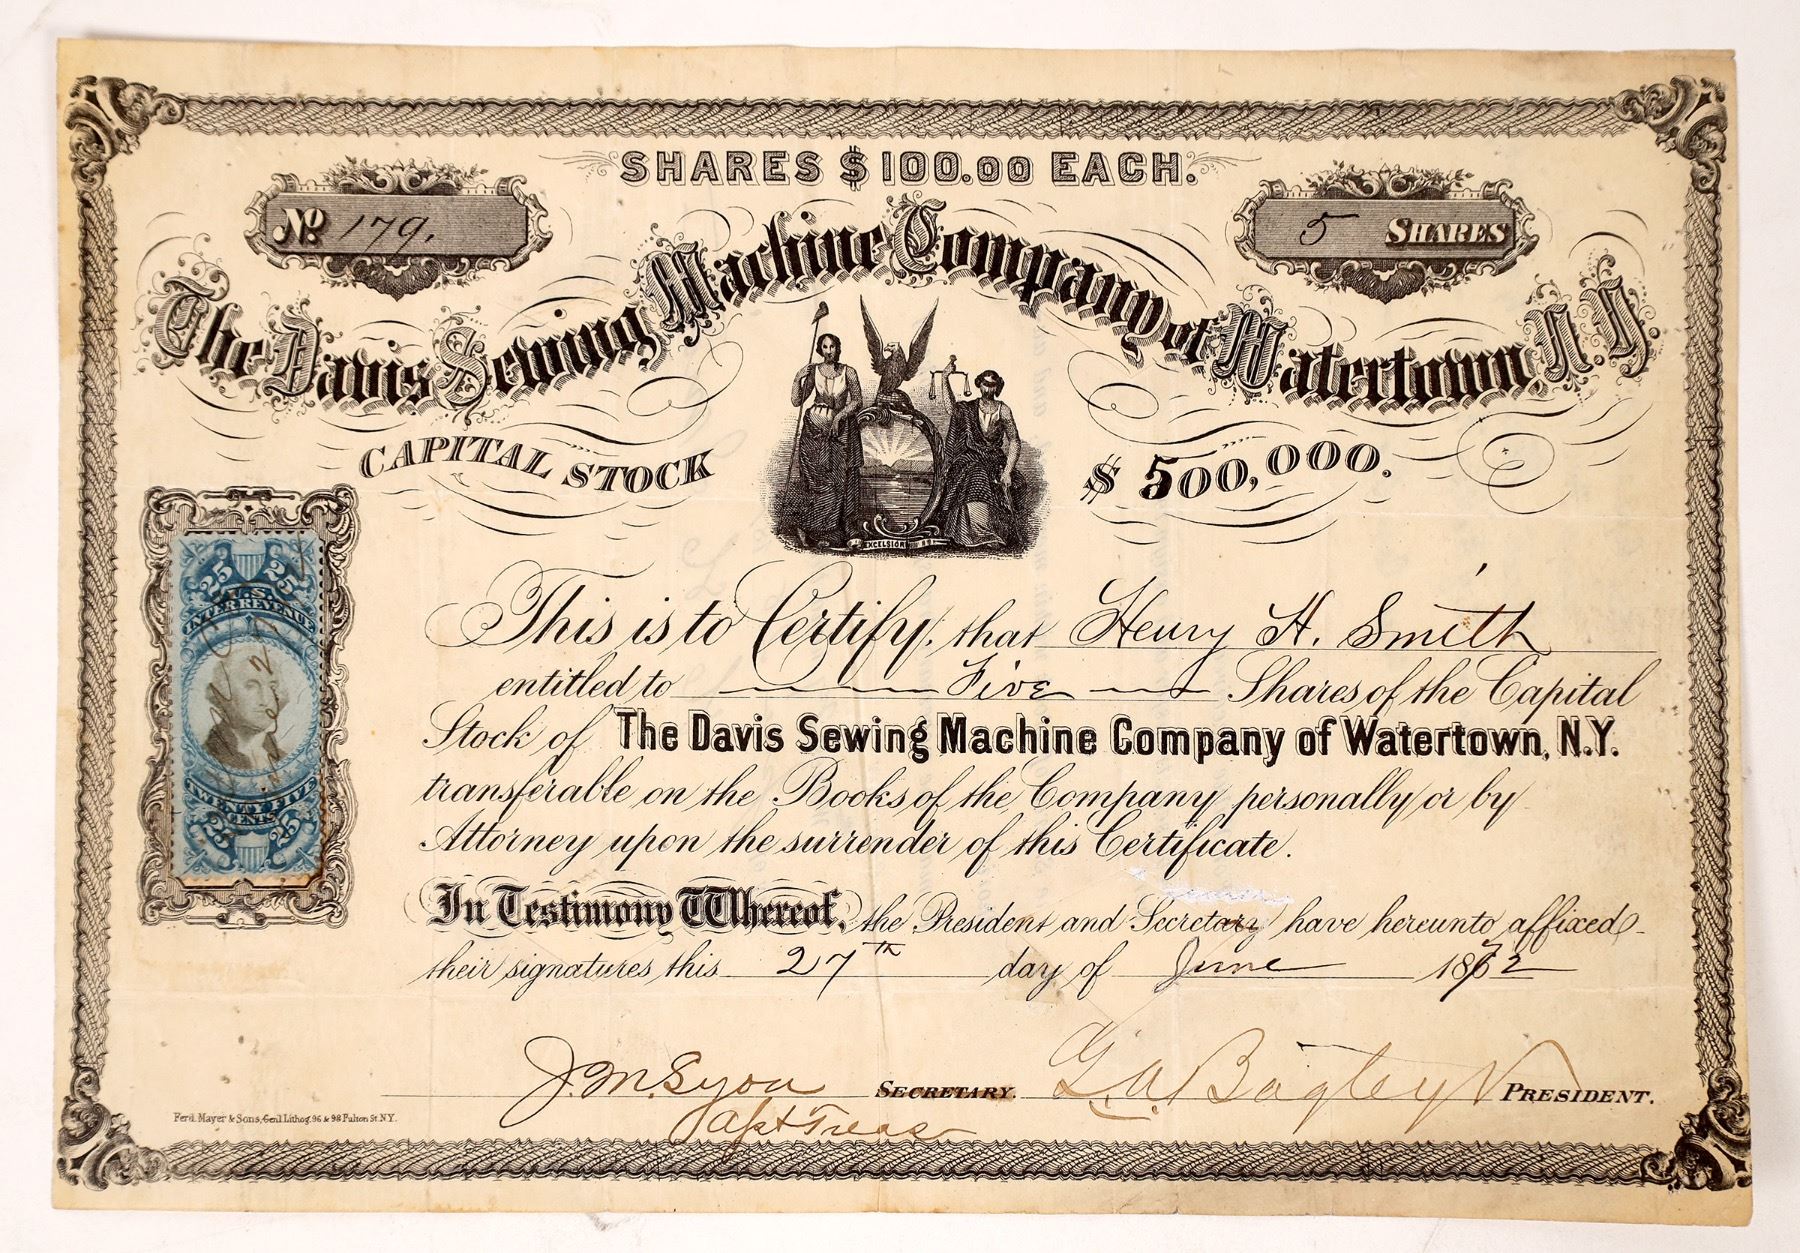 SHARES $100.00 EACH.
No. 179.
5 SHARES
The Davis Sewing Machine Company of Watertown N.Y.
CAPITAL STOCK $500,000.
EXCELSIOR
25 25
U.S.
INTER. REVENUE
TWENTY FIVE
CENTS
25 25
This is to Certify, that Henry H. Smith
entitled to Five Shares of the Capital
Stock of The Davis Sewing Machine Company of Watertown, N.Y.
transferable on the Books of the Company personally or by
Attorney upon the surrender of this Certificate.
In Testimony Whereof, the President and Secretary have hereunto affixed
their signatures this 27th day of June 1872
J. M. Syou SECRETARY. G. A. Bagley V PRESIDENT.
Treas
Ferd. Mayer & Sons, Genl Lithog. 96 & 98 Fulton St. N.Y.